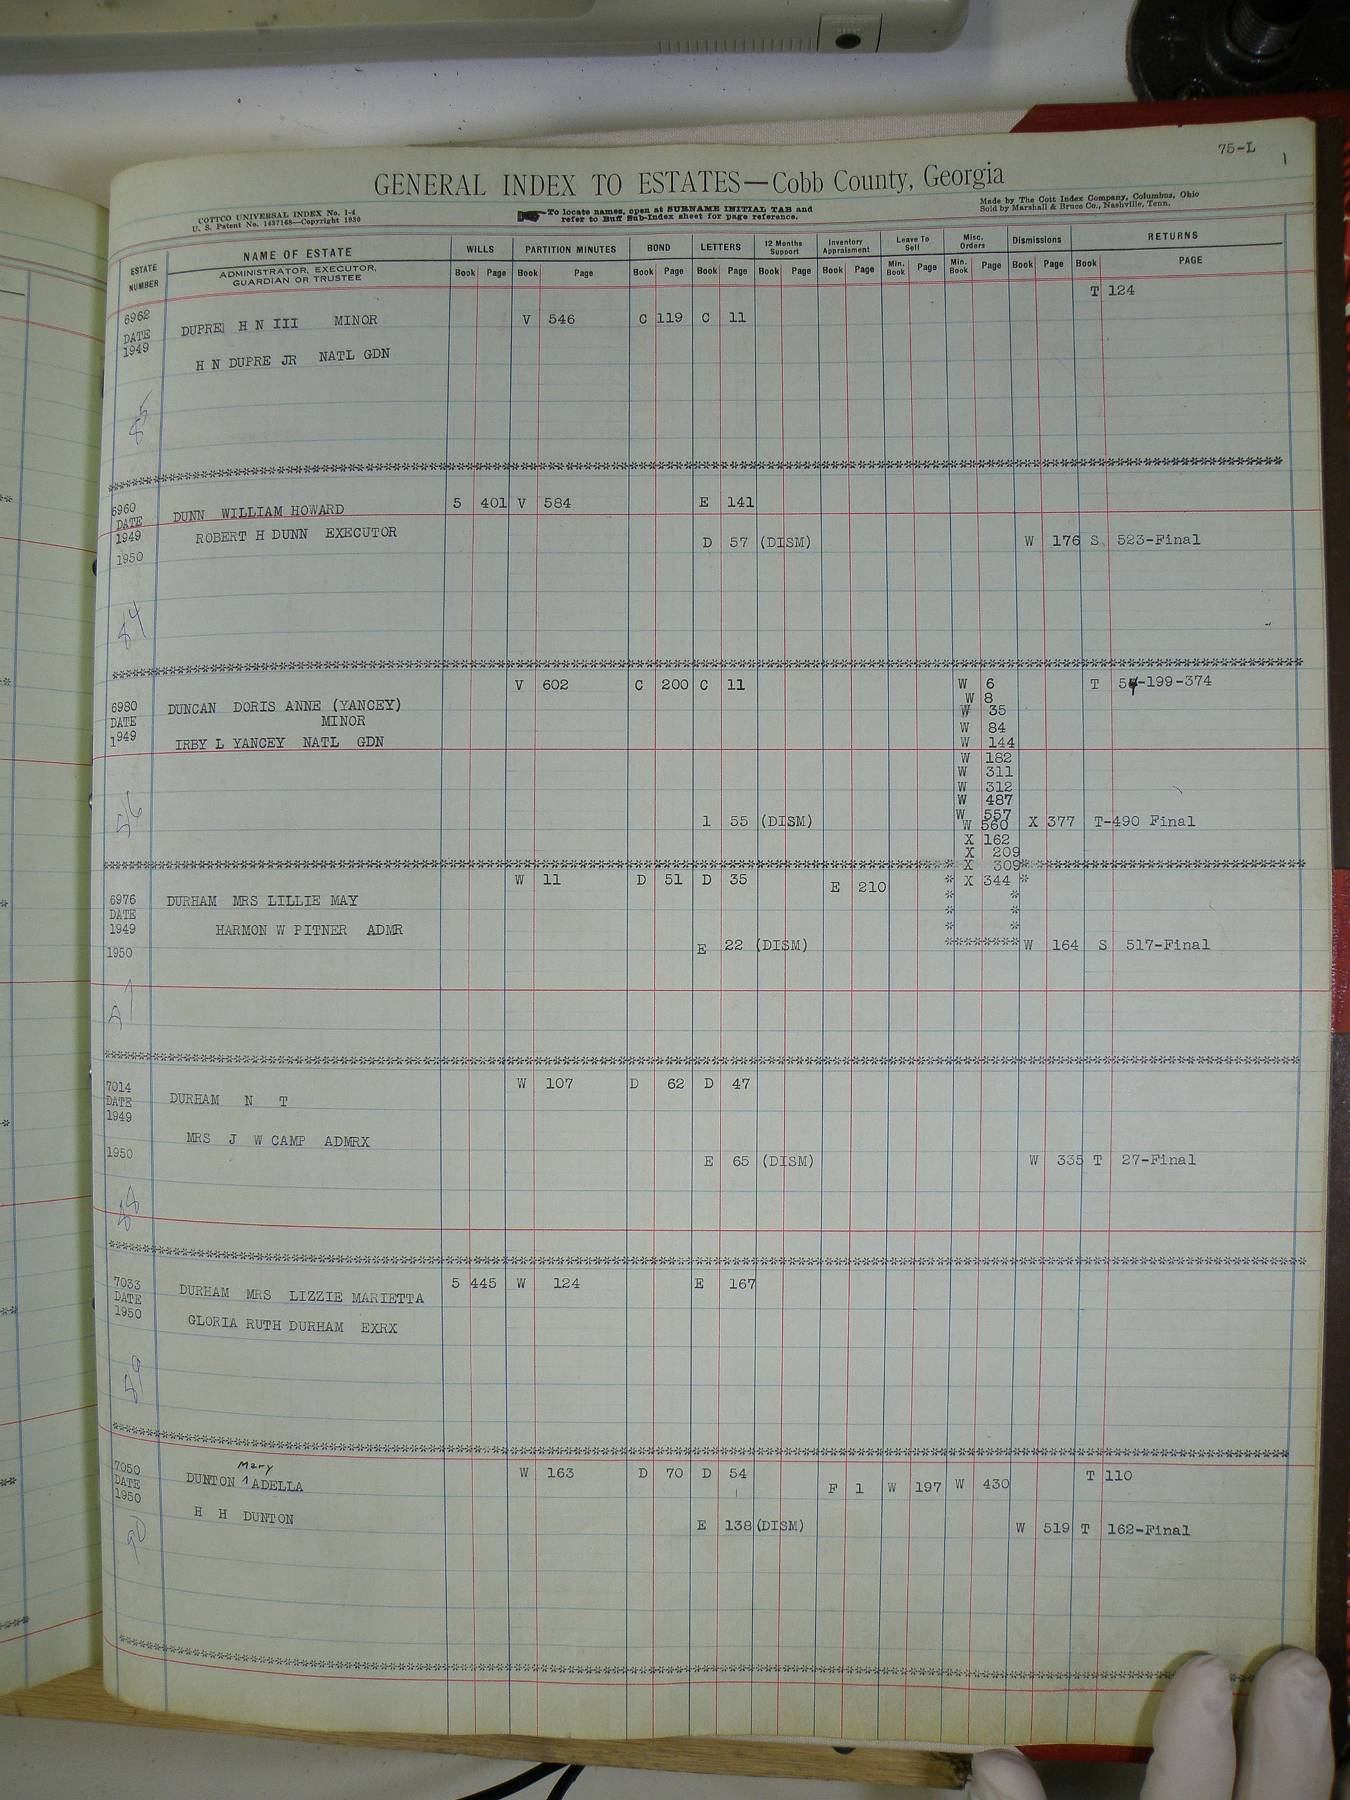 75-L
1
GENERAL INDEX TO ESTATES—Cobb County, Georgia
COTTCO UNIVERSAL INDEX No. 1-4
U. S. Patent No. 1437168—Copyright 1930
To locate names, open at SURNAME INITIAL TAB and
refer to Buff Sub-Index sheet for page reference.
Made by The Cott Index Company, Columbus, Ohio
Sold by Marshall & Bruce Co., Nashville, Tenn.
ESTATE NUMBER
NAME OF ESTATE
ADMINISTRATOR, EXECUTOR,
GUARDIAN OR TRUSTEE
WILLS PARTITION MINUTES BOND LETTERS 12 Months Support Inventory Appraisment Leave To Sell Misc. Orders Dismissions RETURNS
Book Page Book Page Book Page Book Page Book Page Book Page Min. Book Page Min. Book Page Book Page Book PAGE
T 124
6962 DUPRE H N III MINOR V 546 C 119 C 11
DATE
1949
H N DUPRE JR NATL GDN
85
6960 DUNN WILLIAM HOWARD 5 401 V 584 E 141
DATE
1949 ROBERT H DUNN EXECUTOR D 57 (DISM) W 176 S 523-Final
1950
84
V 602 C 200 C 11 W 6 T 54-199-374
W 8
6980 DUNCAN DORIS ANNE (YANCEY) W 35
DATE MINOR W 84
1949 IRBY L YANCEY NATL GDN W 144
W 182
W 311
W 312
W 487
W 557
1 55 (DISM) W 560 X 377 T-490 Final
X 162
X 209
X 309
W 11 D 51 D 35 E 210 X 344
6976 DURHAM MRS LILLIE MAY
DATE
1949 HARMON W PITNER ADMR
1950 E 22 (DISM) W 164 S 517-Final
W 107 D 62 D 47
7014 DURHAM N T
DATE
1949
MRS J W CAMP ADMRX
1950 E 65 (DISM) W 335 T 27-Final
7033 DURHAM MRS LIZZIE MARIETTA 5 445 W 124 E 167
DATE
1950 GLORIA RUTH DURHAM EXRX
W 163 D 70 D 54 T 110
Mary
7050 DUNTON ^ ADELLA F 1 W 197 W 430
DATE
1950
H H DUNTON E 138 (DISM) W 519 T 162-Final
90